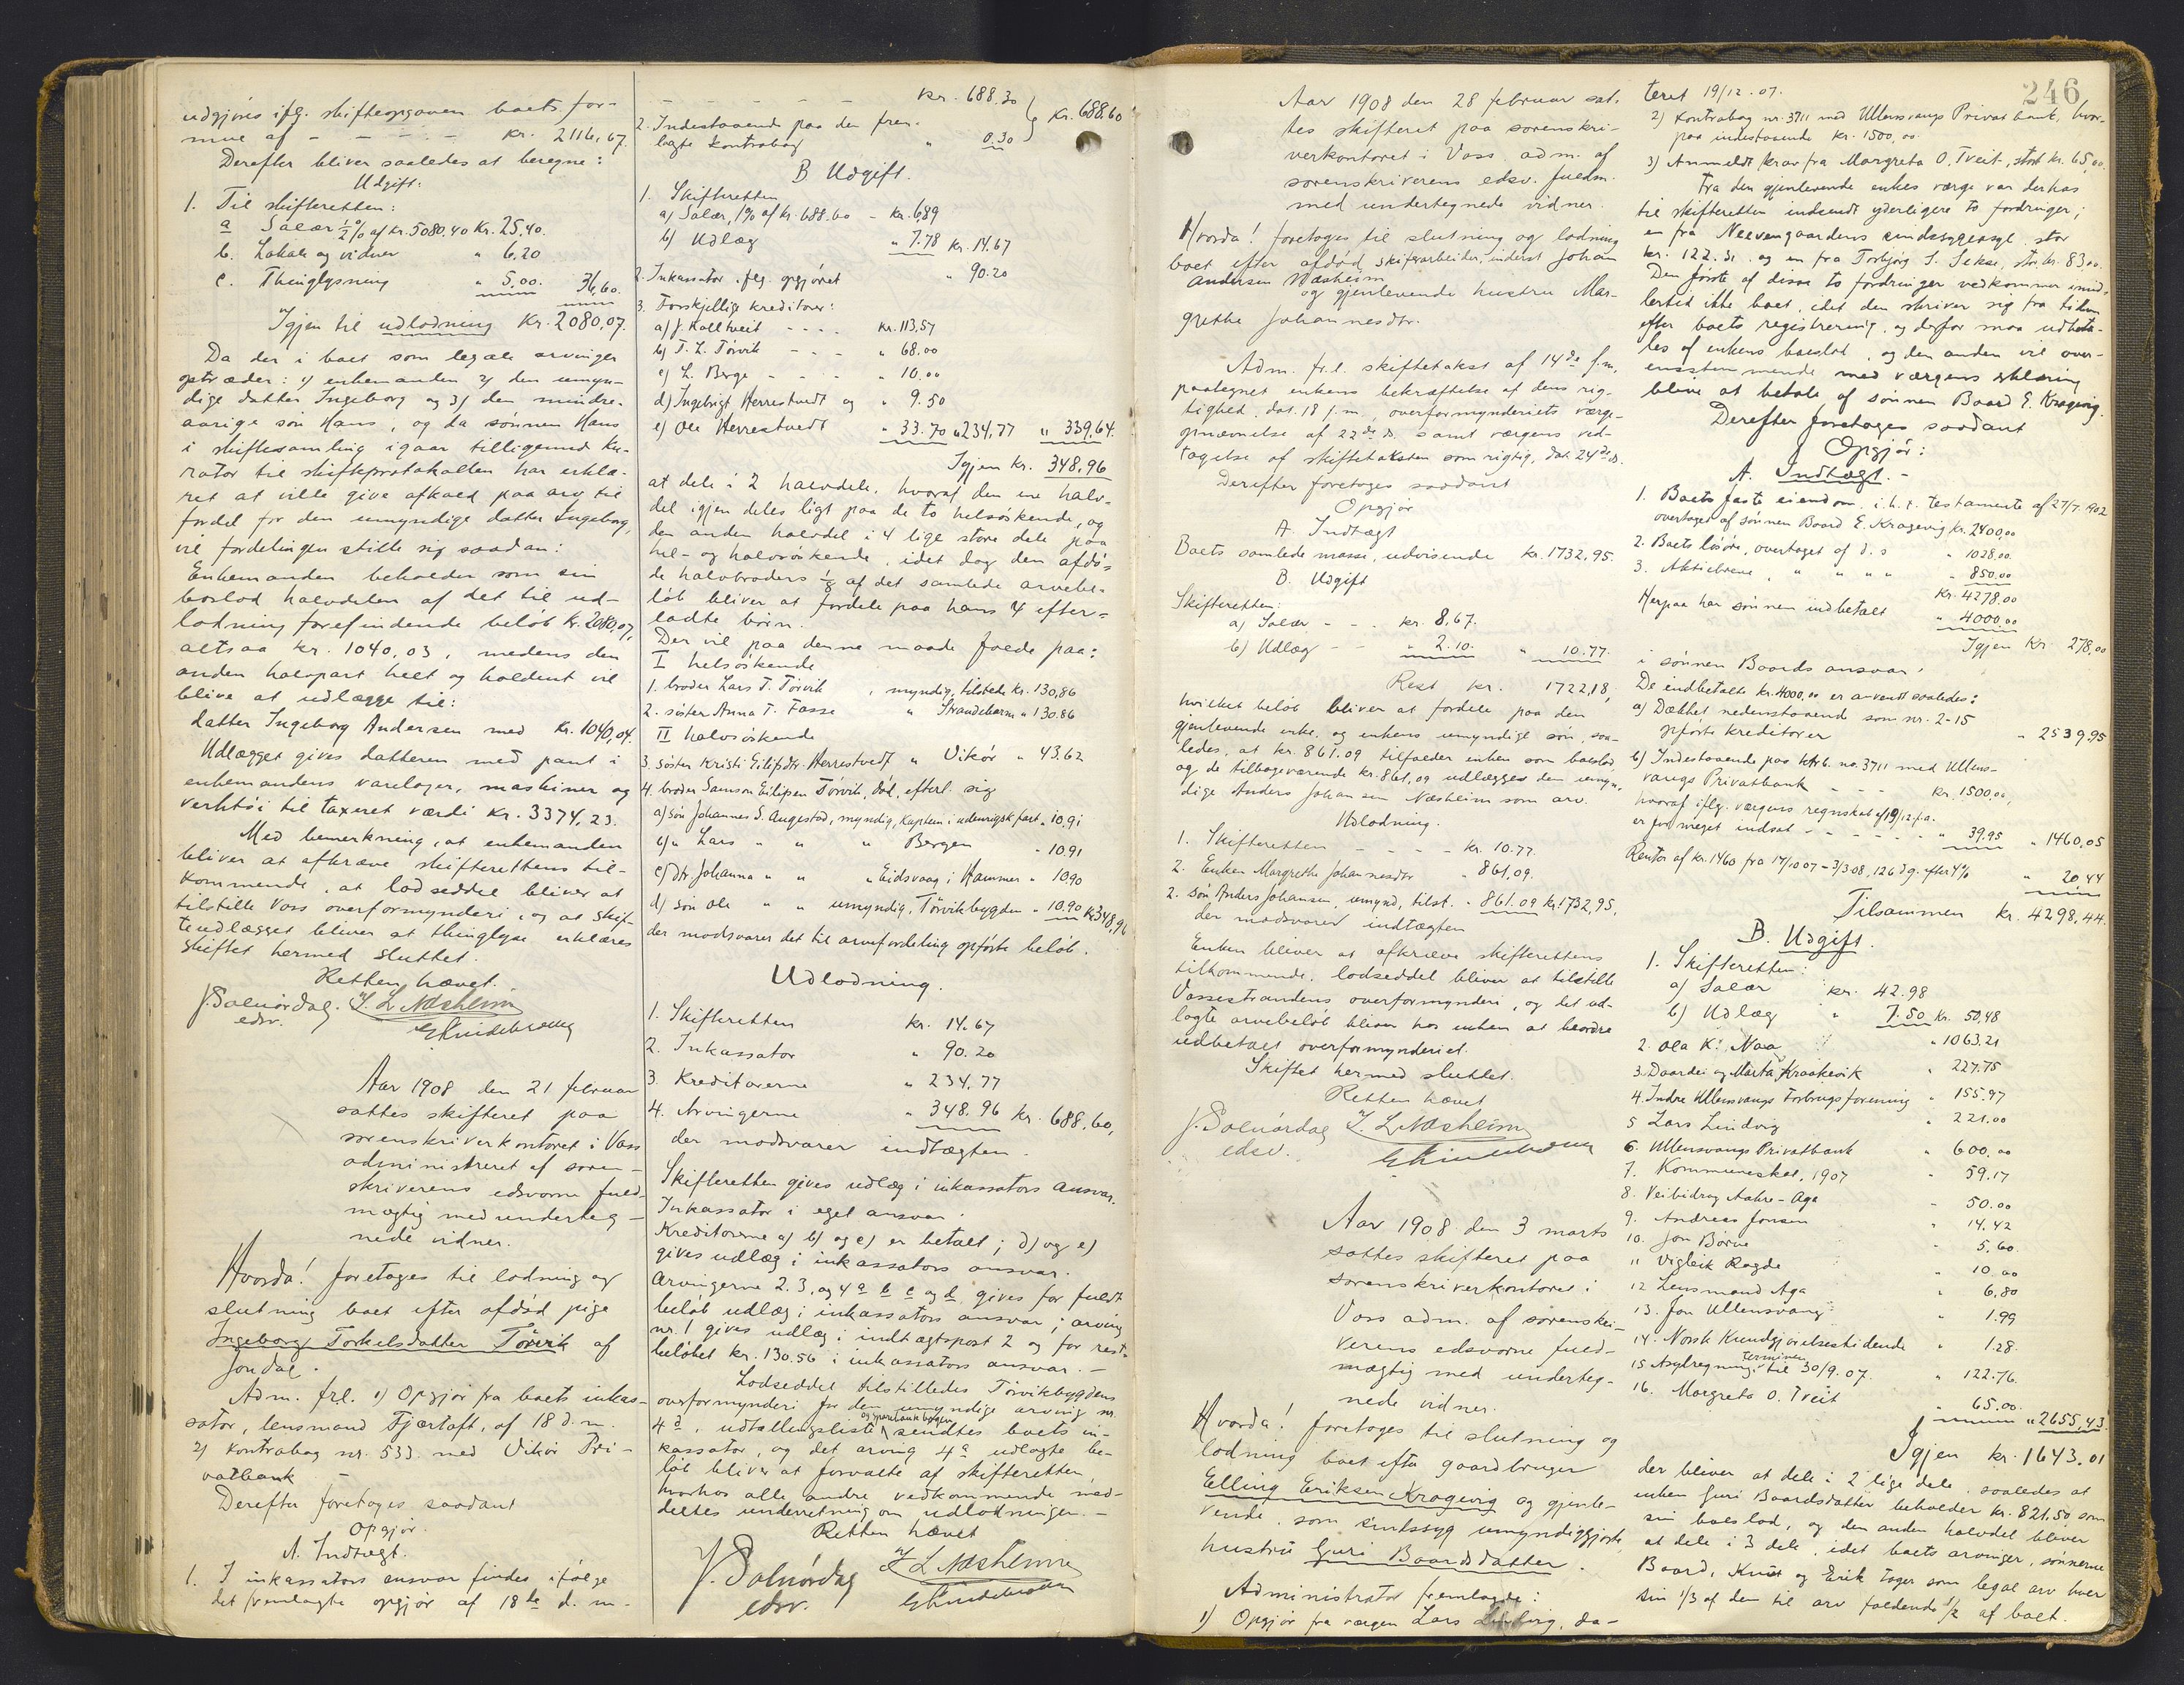 udgjøres iflg. skifteopgaven boets for-
mue af - - - - - kr. 2116,67.
Derefter bliver saaledes at beregne:
Udgift:
1. Til skifteretten:
a Salær ½% af kr. 5080.40 kr. 25.40.
b. Lokale og vidner " 6.20
c. Thinglysning " 5.00. 36,60.
Igjen til udlodning kr. 2080,07.
Da der i boet som legale arvinger
optræder: 1) enkemanden 2) den umyn-
dige datter Ingeborg og 3) den mindre-
aarige søn Hans, og da sønnen Hans
i skiftesamling igaar tilligemed ku-
rator til skifteprotokollen har erklæ-
ret at ville give afkald paa arv til
fordel for den umyndige datter Ingeborg,
vil fordelingen stille sig saadan:
Enkemanden beholder som sin
boslod halvdelen af det til ud-
lodning forefindende beløb kr. 2080,07,
altsaa kr. 1040,03, medens den
anden halvpart helt og holdent vil
blive at udlægge til:
datter Ingeborg Andersen med kr. 1040,04.
Udlægget gives datteren med pant i
enkemandens varelager, maskiner og
verktøi til taxeret værdi kr. 3374,23.
Med bemerkning, at enkemanden
bliver at afkræve skifterettens til-
kommende, at lodseddel bliver at
tilstille Voss overformynderi, og at skif-
teudlægget bliver at thinglyse erklæres
skiftet hermed sluttet.
Retten hævet.
J. Solnørdal. L. Næsheim
edsv.
Aar 1908 den 21 februar
sattes skifteret paa
sorenskriverkontoret i Voss
administreret af soren-
skriverens edsvorne fuld-
mægtig med underteg-
nede vidner.
Hvorda! foretoges til lodning og
slutning boet efter afdød pige
Ingeborg Torkelsdatter Tørvik af
Jondal.
Adm. frl. 1) Opgjør fra boets inkas-
sator, lensmand Fjærtoft, af 18 d. m.
2) kontrabog nr. 533 med Vikør Pri-
vatbank -
Derefter foretoges saadant
Opgjør.
A. Indtægt.
1. I inkassators ansvar findes ifølge
det fremlagte opgjør af 18de d. m.
- - - - - - kr. 688.30
2. Indestaaende paa den frem-
lagte kontrabog " 0.30 } kr. 688.60
B Udgift.
1. Skifteretten
a) Salær, 1% af kr. 688.60 - kr. 6,89
b) Udlæg " 7.78 kr. 14.67
2. Inkassator iflg. opgjøret " 90.20
3. Forskjellige kreditorer:
a) J. Kolltveit - - - - kr. 113,57
b) T. L. Tørvik - - - " 68.00
c) L. Berge - - - - " 10.00
d) Ingebrigt Herrestvedt og " 9.50
e) Ole Herrestvedt " 33.70 " 234,77 " 339,64.
Igjen kr. 348,96
at dele i 2 halvdele, hvoraf den ene halv-
del igjen deles ligt paa de to helsøskende, og
den anden halvdel i 4 lige store dele paa
hel- og halvsøskende, idet dog den afdø-
de halvbroders 1/8 af det samlede arvebe-
løb bliver at fordele paa hans 4 efter-
ladte børn.
Der vil paa denne maade falde paa:
I helsøskende
1. broder Lars T. Tørvik, myndig, tilstede kr. 130,86
2. søster Anna T. Fosse " Strandebarm " 130.86
II halvsøskende
3 søster Kristi Eilifsdtr. Herrestvedt " Vikør " 43.62
4. broder Samson Eilifsen Tørvik, død, efterl. sig
a) søn Johannes S. Augestad, myndig, kaptein i udenrigsk fart " 10.91
b) " Lars " " " Bergen " 10.91
c) dtr. Johanna " " " Eidsvaag i Hammer " 10.90
d) søn Ole " " umyndig, Tørvikbygden " 10.90 kr 348,96
der modsvarer det til arvefordeling opførte beløb.
Udlodning.
1. Skifteretten kr. 14.67
2. Inkassator " 90.20
3. Kreditorerne " 234.77
4. Arvingerne " 348.96 kr. 688,60,
der modsvarer indtægten.
Skifteretten gives udlæg i inkassators ansvar.
Inkassator i eget ansvar.
Kreditorerne a) b) og c) er betalt; d) og e)
gives udlæg i inkassators ansvar.
Arvingerne 2. 3. og 4 a b c og d gives for fuldt
beløb udlæg i inkassators ansvar; arving
nr. 1 gives udlæg i indtægtspost 2 og for rest-
beløbet kr. 130.56 i inkassators ansvar. -
Lodseddel tilstilledes Tørvikbygdens
overformynderi for den umyndige arving nr.
4 d, udtællingsliste og sparebankbogen sendtes boets in-
kassator, og det arving 4 a udlagte be-
løb bliver at forvalte af skifteretten,
hvorhos alle andre vedkommende med-
deltes underretning om udlodningen. -
Retten hævet
J. Solnørdal L. Næsheim
edsv.
246
Aar 1908 den 28 februar sat-
tes skifteret paa sorenskri-
verkontoret i Voss adm. af
sorenskriverens edsv. fuldm.
med undertegnede vidner.
Hvorda! foretoges til slutning og lodning
boet efter afdød skiferarbeider, inderst Johan
Andersen Næsheim
og gjenlevende hustru Mar-
grethe Johannesdtr.
Adm. fr.l. skiftetakst af 14de f.m.
paategnet enkens bekræftelse af dens rig-
tighed, dat. 18 f.m., overformynderiets værge-
opnævnelse af 22de ds. samt værgens ved-
tagelse af skiftetaksten som rigtig, dat. 24de ds.
Derefter foretoges saadant
Opgjør
A. Indtægt
Boets samlede masse, udvisende kr. 1732,95.
B. Udgift
Skifteretten:
a) Salær - - - kr. 8.67.
b) Udlæg - - " 2.10. " 10.77.
Rest kr. 1722,18,
hvilket beløb bliver at fordele paa den
gjenlevende enke og enkens umyndige søn, saa-
ledes, at kr. 861.09 tilfalder enken som boslod
og de tilbageværende kr. 861,09 udlægges den umyn-
dige Anders Johansen Næsheim som arv.
Udlodning.
1. Skifteretten - - - - kr. 10.77.
2. Enken Margrethe Johannesdtr " 861,09.
2. søn Anders Johansen, umynd, tilst. " 861.09 kr. 1732,95,
der modsvarer indtægten
Enken bliver at afkræve skifterettens
tilkommende, lodseddel bliver at tilstille
Vossestrandens overformynderi, og det ud-
lagte arvebeløb bliver hos enken at beordre
udbetalt overformynderiet.
Skiftet hermed sluttet.
Retten hævet
J. Solnørdal L. Næsheim
edsv.
Aar 1908 den 3 marts
sattes skifteret paa
sorenskriverkontoret i
Voss adm. af sorenskri-
verens edsvorne fuld-
mægtig med underteg-
nede vidner.
Hvorda! foretoges til slutning og
lodning boet efter gaardbruger
Elling Eriksen Kragevig og gjenle-
vende, som sindssyg umyndiggjorte
hustru Guri Baardsdatter.
Administrator fremlagde:
1) Opgjør fra værgen Lars Lindvig, da-
teret 19/12.07.
2) Kontrabog nr. 3711 med Ullensvangs Privatbank, hvor-
paa indestaaende kr. 1500,00.
3) Anmeldt krav fra Margreta O. Tveit, stort kr. 65,00.
Fra den gjenlevende enkes værge var derhos
til skifteretten indsendt yderligere to fordringer;
en fra Neevengaardens sindssygeasyl stor
kr. 122.31. og en fra Torbjørg S. Sekse, stor kr. 83.00.
Den første af disse to fordringer vedkommer imid-
lertid ikke boet, idet den skriver sig fra tiden
efter boets registrering, og derfor maa udbeta-
les af enkens boeslod, og den anden vil over-
ensstemmende med værgens erklæring
blive at betale af sønnen Baard E. Kragevig.
Derefter foretoges saadant
Opgjør:
A. Indtægt. -
1. Boets faste eiendom i h. t. testamente af 27/7.1902
overtaget af sønnen Baard E. Kragevig kr. 2400,00
2. Boets løsøre, overtaget af d. s " 1028.00.
3. Aktiebreve, " " " " " 850.00
kr. 4278.00
Herpaa har sønnen indbetalt " 4000.00
Igjen kr 278,00
i sønnen Baards ansvar.
De indbetalte kr. 4000,00 er anvendt saaledes:
a) Dækket nedenstaaende som nr. 2-15
opførte kreditorer " 2539,95
b) Indestaaende paa ktrb. no. 3711 med Ullens-
vangs Privatbank - - - kr. 1500,00,
hvoraf iflg. værgens regnskab af 19/12 f.a.
er for meget indsat - - - - - " 39.95 " 1460,05
Renter af kr. 1460 fra 17/10 07 - 3/3 08, 126 dg. efter 4% " 20,44
Tilsammen kr. 4298,44.
B. Udgift.
1. Skifteretten:
a) Salær kr. 42.98
b) Udlæg " 7.50 kr. 50,48
2. Ola K. Naa " 1063.21
3. Daardei og Marta Kraakevik " 227.75
4. Indre Ullensvangs Forbrugsforening " 155.97
5 Lars Lindvig " 221.00
6. Ullensvangs Privatbank " 600.00
7. Kommuneskat, 1907 " 59.17
8. Veibidrag Aahre-Aga " 50.00
9. Andreas Jonsen " 14.42
10. Jon Børve " 5.60.
11 Vigleik Ragde " 10.00
12 Lensmand Aga " 6,80
13. Jon Ullensvang " 1.99
14. Norsk Kundgjørelsestidende " 1.28.
15 Asylregning terminen til 30/9.07. " 122.76.
16. Margreta O. Tveit " 65.00. " 2655,43
Igjen kr. 1643.01
der bliver at dele i 2 lige dele, saaledes at
enken Guri Baardsdatter beholder kr. 821,50 som
sin boeslod, og den anden halvdel bliver
at dele i 3 dele, idet boets arvinger, sønnerne
Baard, Knut og Erik tager som legal arv hver
sin 1/3 af den til arv faldende 1/2 af boet.